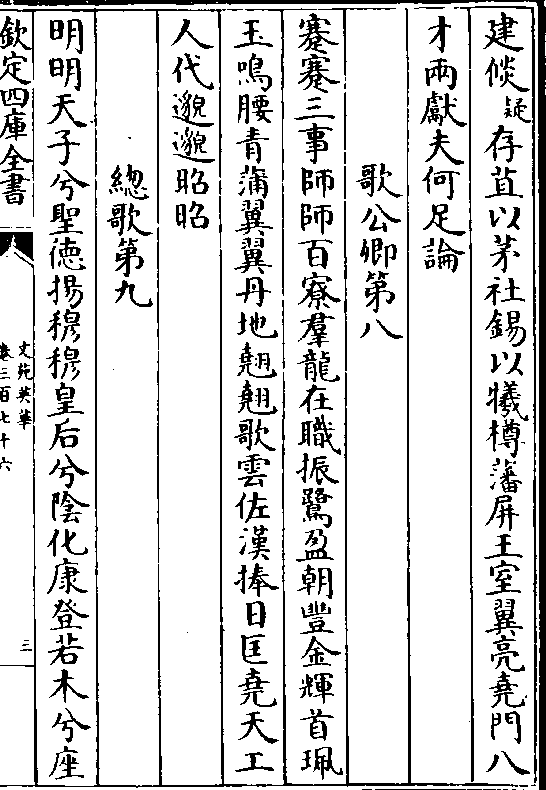 建倓疑存苴以茅社錫以犧樽藩屏王室翼亮堯門八
才兩獻夫何足論
歌公卿第八
蹇蹇三事師師百寮羣龍在職振鷺盈朝豐金輝首珮
玉鳴腰青蒲翼翼丹地翹翹歌雲佐漢捧日匡堯天工
人代邈邈昭昭
總歌第九
明明天子兮聖徳揚穆穆皇后兮陰化康登若木兮座
欽定四庫全書
文苑英華
卷三百七十六
三